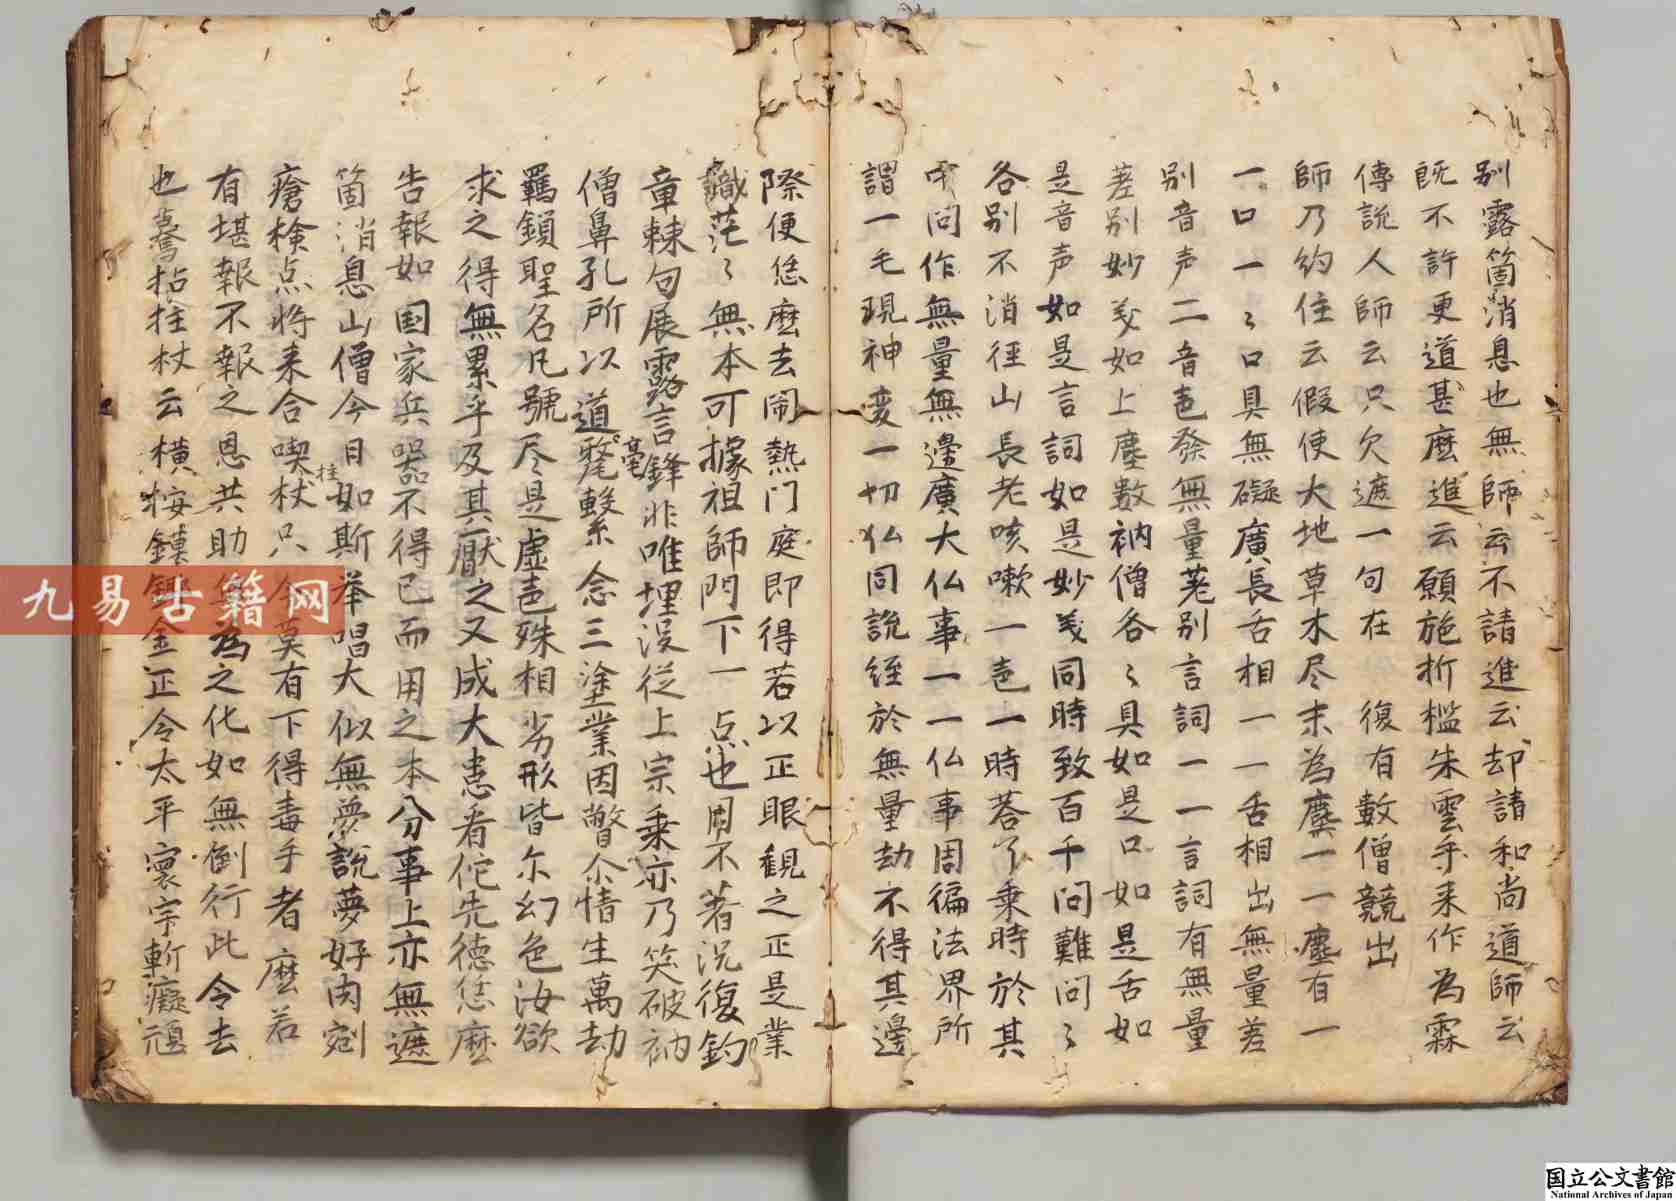 别露箇消息也無師云不請進云却請和尚道師云
既不許更道甚麼進云願施折檻朱雲手来作為霖
傳說人師云只欠遮一句在　復有數僧競出
師乃約住云假使大地草木尽末為塵一一塵有一
一口一ミ口具無礙廣長舌相一一舌相出無量差
别音声一一音声發無量差别言詞一一言詞有無量
差别妙义如上塵数衲僧各ミ具如是口如是舌如
是音声如是言詞如是妙义同時致百千問難問ミ
各别不消徑山長老咳嗽一声一時荅了乗時於其
中間作無量無邊廣大仏事一一仏事周徧法界所
謂一毛現神变一切仏同説經於無量劫不得其邊
際便恁麼去閙熱門庭即得若以正眼觀之正是業
識茫ミ無本可據祖師門下一点也用不著况復鈎
章棘句展露言鋒非唯埋没從上宗乗亦乃笑破衲
僧鼻孔所以道毫氂繫念三塗業因瞥尒情生萬劫
羈鎖聖名凡號尽是虚声殊相劣形皆尔幻色汝欲
求之得無累乎及其厭之又成大患看佗先德恁麼
告報如国家兵噐不得已而用之本分事上亦無遮
箇消息山僧今日如斯举唱大似無夢説夢好肉剜
瘡検点将来合喫拄杖只今莫有下得毒手者麼若
有堪報不報之恩共助無為之化如無倒行此令去
也驀拈拄杖云横按鏌鎁全正令太平寰宇斬癡頑
九易古籍网
国立公文書館
National Archives of Japan